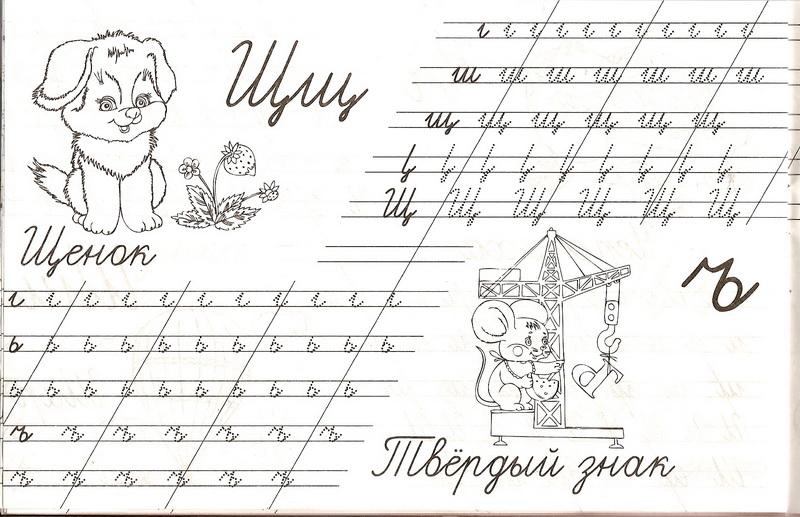 Щщ
ш ш ш ш ш ш ш
щ щ щ щ щ щ
Щ Щ Щ Щ Щ Щ
Щенок
ъ
ь ь ь ь ь ь ь ь ь ь
ь ь ь ь ь ь ь ь ь
ъ ъ ъ ъ ъ ъ ъ
ъ ъ ъ ъ ъ ъ
Твёрдый знак